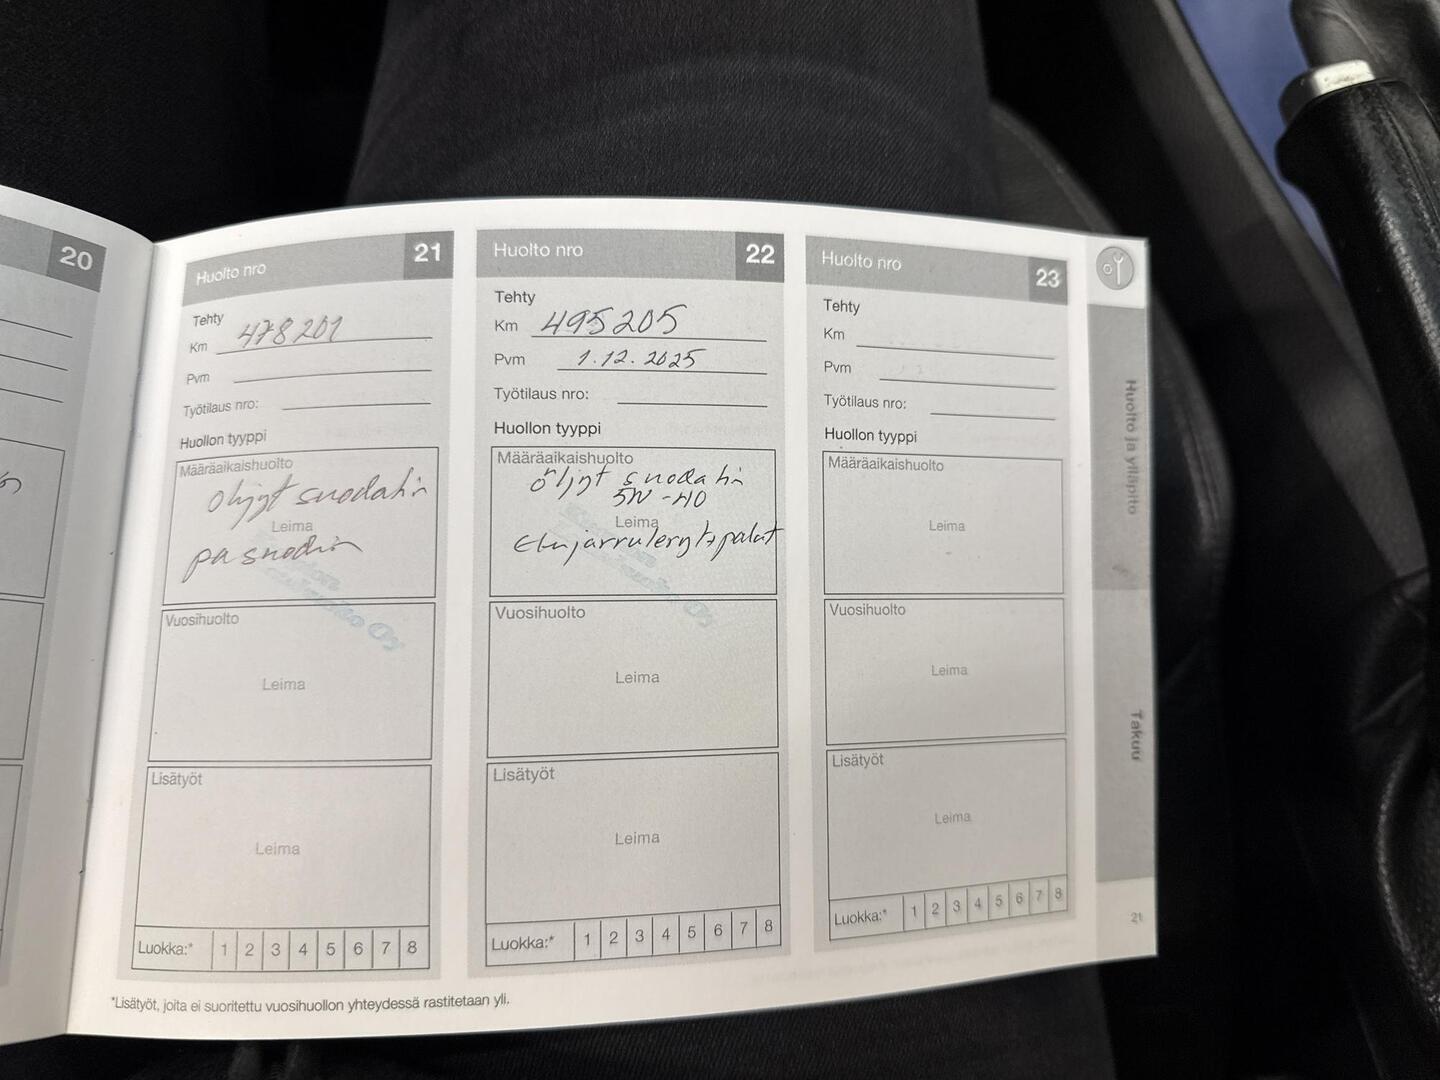 20
Huolto nro 21
Tehty
Km 478201
Pvm
Työtilaus nro:
Huollon tyyppi
Määräaikaishuolto
öljyt suodatin
Leima
Vuosihuolto
Leima
Lisätyöt
Leima
Luokka:* 1 2 3 4 5 6 7 8
Huolto nro 22
Tehty
Km 495205
Pvm 1.12.2025
Työtilaus nro:
Huollon tyyppi
Määräaikaishuolto
öljyt suodatin
5W-40
Leima
Etujarrulevyt+palat
Oy
Vuosihuolto
Leima
Lisätyöt
Leima
Luokka:* 1 2 3 4 5 6 7 8
Huolto nro 23
Tehty
Km
Pvm
Työtilaus nro:
Huollon tyyppi
Määräaikaishuolto
Leima
Vuosihuolto
Leima
Lisätyöt
Leima
Luokka:* 1 2 3 4 5 6 7 8
*Lisätyöt, joita ei suoritettu vuosihuollon yhteydessä rastitetaan yli.
Huolto ja ylläpito
Takuu
21